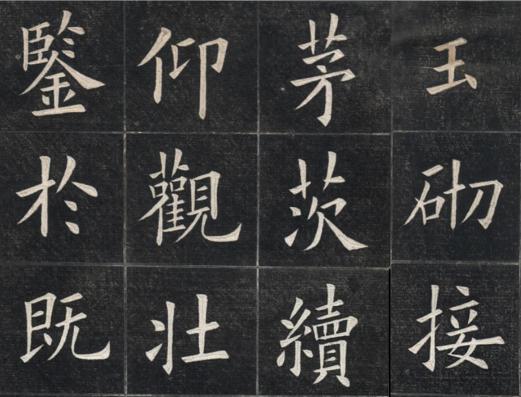 玉砌接
茅茨續
仰觀壯
鑒於既